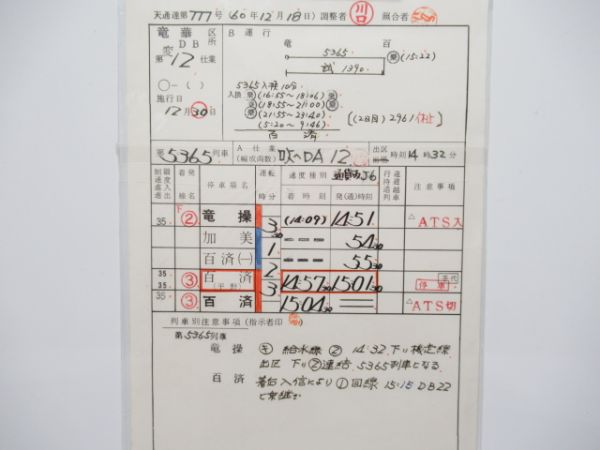 天通達第777号(60年12月18日)調整者 川口 照合者
竜華区所 B運行
変DB
第12仕業
竜 百
5365 (15:22)
試1390
○-( )
施行日
12月30日
5365入換10分
入換 (16:55~18:06)
(18:55~21:00)
(21:55~23:40)
(5:20~9:46)
百済
[(2日目)2961休止]
第5365列車 A仕業(編成両数) 吹~DA12 出区 時刻14時32分
制限速度 進入 進出
着発線名 停車場名 運転時分 速度種別 通貨丙56
着時刻 発(通)時刻
行違 待避 通過 追越 列車
注意事項
35. 下② 竜操 3 30 (14:09) 14:51 △ATS入
加美 1 --- 54 30
百済(一) 2 --- 55 30
35. 35. ③ 百済 3 14:57 30 15:01 30 停車
35. ③ 百済 15:04 30 == △ATS切
列車別注意事項(指示者印
第5365列車
竜操 給水線② 14:32 下り検定線
出区 下り②連結 5365列車となる
百済 着后入信により①回線 15:15 DB22
と乗継ぎ